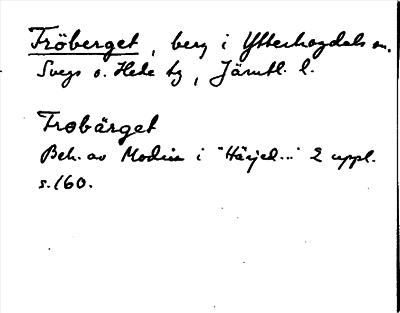 Fröberget, berg i Ytterhogdals sn.
Svegs o. Hede tg, Jämtl. l.
Frobärget
Beh. av Modin i "Härjed..." 2 uppl.
s. 160.